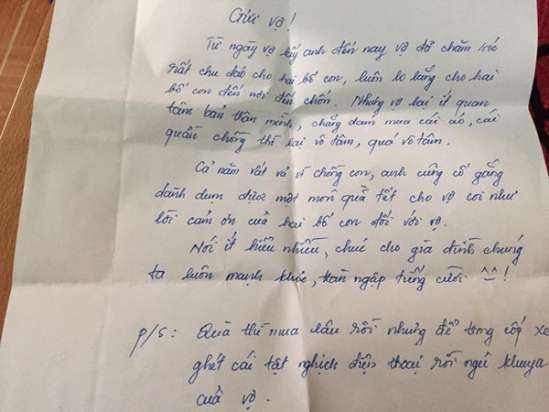 Gửi vợ!
Từ ngày vợ lấy anh đến nay vợ đã chăm sóc
rất chu đáo cho hai bố con, luôn lo lắng cho hai
bố con đến nơi đến chốn. Nhưng vợ lại ít quan
tâm bản thân mình, chẳng dám mua cái áo, cái
quần chồng thì lại vô tâm, quá vô tâm.
Cả năm vất vả vì chồng con, anh cũng cố gắng
dành dụm được một món quà tết cho vợ coi như
lời cảm ơn của hai bố con đối với vợ.
Nói ít hiểu nhiều, chúc cho gia đình chúng
ta luôn mạnh khỏe, tràn ngập tiếng cười ^^!
p/s: Quà thì mua lâu rồi nhưng để trong cốp xe
ghét cái tật nghịch điện thoại rồi ngủ khuya
của vợ.